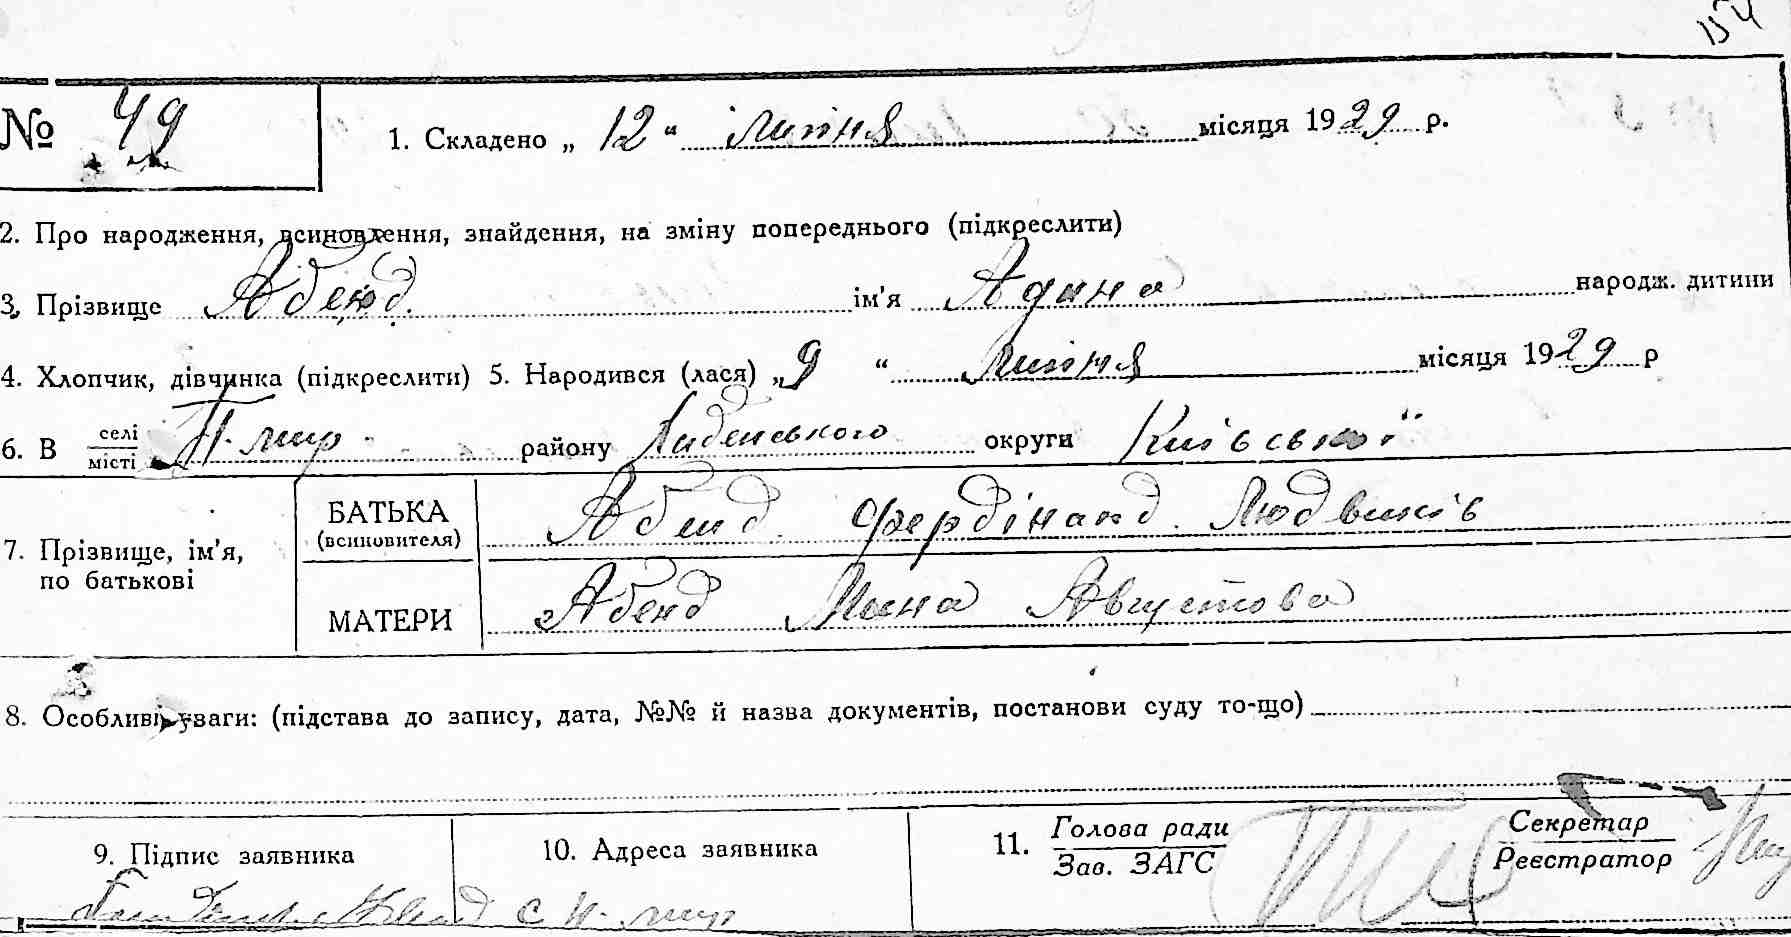 154
№ 49
1. Складено „ 12 “ липня місяця 1929 р.
2. Про народження, всиновлення, знайдення, на зміну попереднього (підкреслити)
3. Прізвище Абенд ім'я Адина народж. дитини
4. Хлопчик, дівчинка (підкреслити) 5. Народився (лася) „ 9 “ липня місяця 1929 р
6. В селі / місті Н. мир району округи Київської
7. Прізвище, ім'я, по батькові
БАТЬКА (всиновителя) Абенд Фердінанд Людвиків
МАТЕРИ Абенд Августова
8. Особливі уваги: (підстава до запису, дата, №№ й назва документів, постанови суду то-що)
9. Підпис заявника
10. Адреса заявника
с Н. мир
11. Голова ради / Зав. ЗАГС
Секретар / Реєстратор